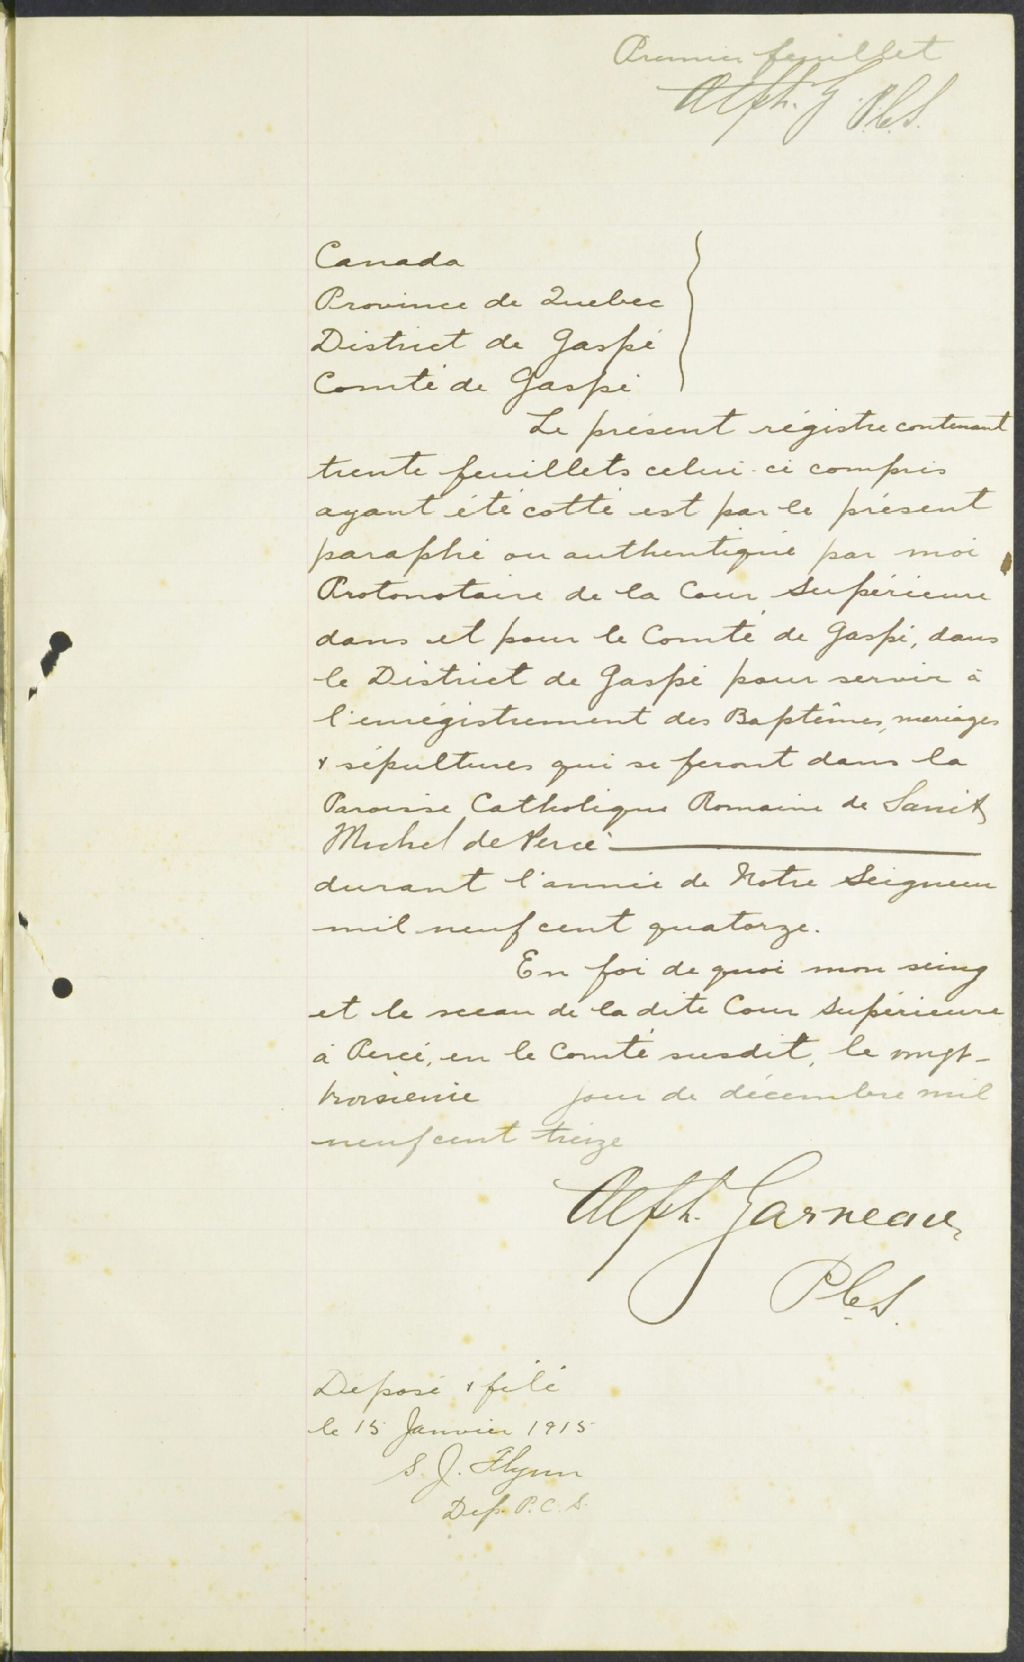 Premier feuillet
Alph. G. P.C.S.
Canada
Province de Quebec
District de Gaspé
Comté de Gaspé
Le présent régistre contenant
trente feuillets celui-ci compris
ayant été cotté est par le présent
paraphé ou authentiqué par moi
Protonotaire de la Cour Supérieure
dans et pour le Comté de Gaspé, dans
le District de Gaspé pour servir à
l'enrégistrement des Baptêmes, mariages
& sépultures qui se feront dans la
Paroisse Catholique Romaine de Saint
Michel de Percé
durant l'année de Notre Seigneur
mil neuf cent quatorze.
En foi de quoi mon seing
et le sceau de la dite Cour Supérieure
à Percé, en le Comté susdit, le vingt-
troisième jour de décembre mil
neuf cent treize
Alph. Garneau
P.C.S.
Déposé & filé
le 15 Janvier 1915
S. J. Flynn
Dep. P.C.S.